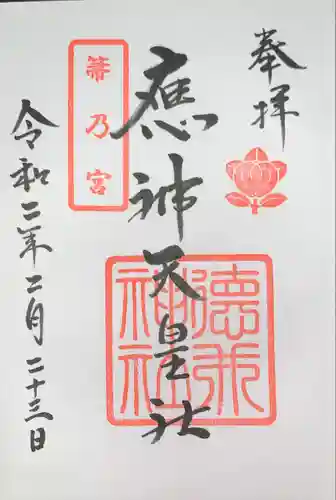 奉拝
應神天皇社
徳威神社
箒乃宮
令和二年二月二十三日